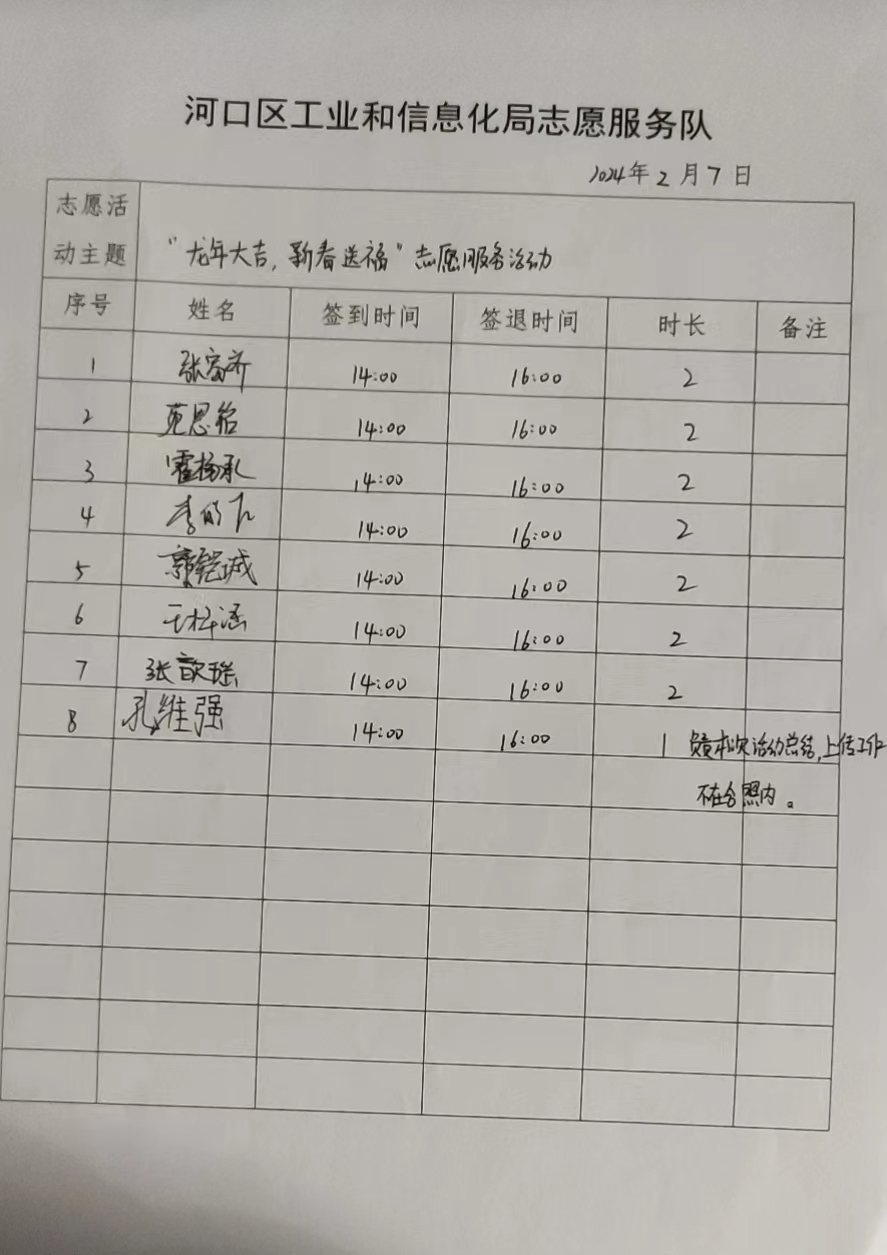 河口区工业和信息化局志愿服务队
2024年2月7日
志愿活动主题 “龙年大吉,新春送福”志愿服务活动
序号 姓名 签到时间 签退时间 时长 备注
1 张富齐 14:00 16:00 2
2 苑思铭 14:00 16:00 2
3 霍杨承 14:00 16:00 2
4 李 14:00 16:00 2
5 郭铠诚 14:00 16:00 2
6 王梓涵 14:00 16:00 2
7 张歆瑶 14:00 16:00 2
8 孔维强 14:00 16:00 1 负责本次活动总结,上传工作
不在合照内。